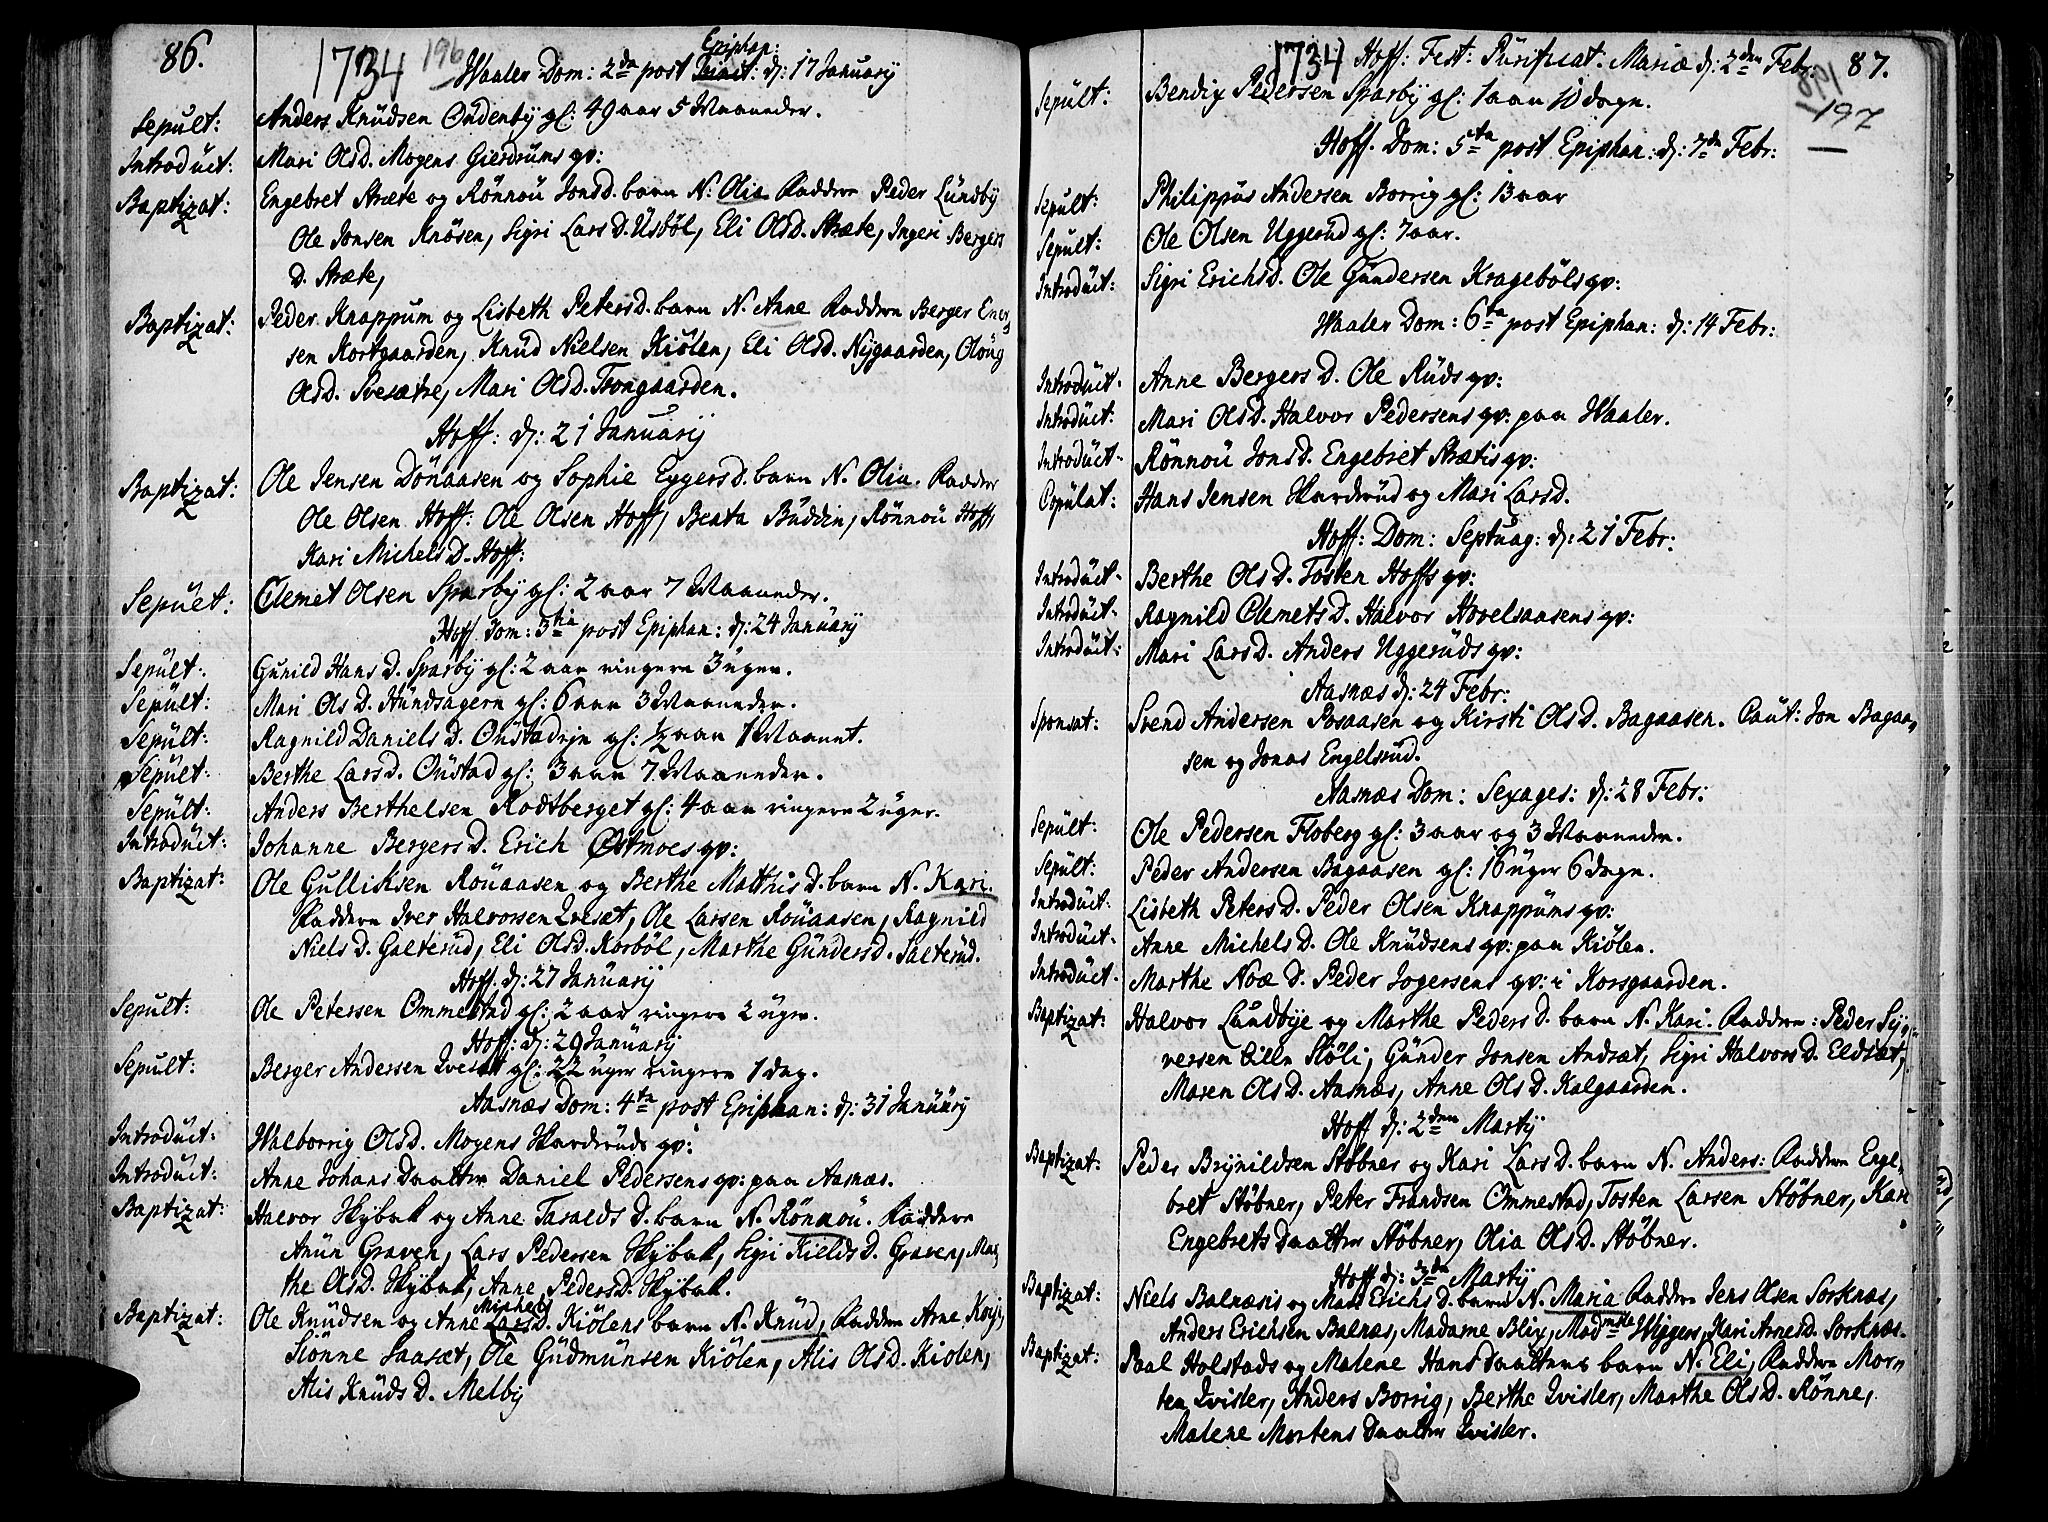 86.
1734 196 Waaler Dom: 2da post Epiphan: d: 17 January
Sepult: Anders Knudsen Ondenby gl: 49 aar 5 Maaneder.
Introduct: Mari Olsd. Mogens Gierdrums qv:
Baptizat: Engebret Stræte og Rönnou Jonsd. barn N. Olia Faddere Peder Lundby
Ole Jonsen Knösen, Sigri Larsd. Usböl, Eli Olsd. Stræte, Ingeri Bergers
D. Stræte,
Baptizat: Peder Knappum og Lisbeth Petersd. barn N. Anne Faddere Berger Ener
sen Kortgaarden, Knud Nielsen Kiölen, Eli Olsd. Nygaarden, Oloug
Olsd. Svesætre, Mari Olsd. Trongaarden.
Hoff: d: 21 January
Baptizat: Ole Jensen Dönaasen og Sophie Eggersd. barn N. Olia. Faddere
Ole Olsen Hoff: Ole Olsen Hoff, Beata Buddin, Rönnou Hoff,
Kari Michelsd. Hoff:
Sepult: Clemet Olsen Sparby gl: 2 aar 7 Maaneder.
Hoff. Dom: 3tia post Epiphan: d: 24 January
Sepult: Gunild Hansd. Sparby gl: 2 aar ringere 3 uger.
Sepult: Mari Olsd. Hundsagern gl: 6 aar 3 Maaneder.
Sepult: Ragnild Daniels D. Onstadeje gl: ½ aar 1 Maanet.
Sepult: Berthe Larsd. Onstad gl: 3 aar 7 Maaneder.
Sepult: Anders Berthelsen Rodtberget gl: 4 aar ringere 2 uger.
Introduct: Johanne Bergersd. Erich Østmoes qv:
Baptizat: Ole Gulliksen Rouaasen og Berthe Matthisd. barn N. Kari.
Faddere Iver Halvorsen Qvesæt, Ole Larsen Rouaasen, Ragnild
Nielsd. Galterud, Eli Olsd. Korböl, Marthe Gundersd. Salterud.
Hoff: d: 27 January
Sepult: Ole Petersen Ommestad gl: 2 aar ringere 2 uger.
Hoff: d: 29 January
Sepult: Berger Andersen Qvesæt gl: 22 uger ringere 1 dag.
Aasnæs Dom: 4ta post Epiphan: d: 31 January
Introduct: Walborrig Olsd. Mogens Skarderuds qv:
Introduct: Anne Johans Daatter Daniel Pedersens qv: paa Aasnæs.
Baptizat: Halvor Skybak og Anne Taralds D. barn N. Rönnou. Faddere
Amun Graven, Lars Pedersen Skybak, Sigri Kields D. Graven, Mar
the Olsd. Skybak, Anne Pedersd. Skybak.
Baptizat: Ole Knudsen og Anne Michels D. Kiölens barn N. Knud, Faddere Arne
Slönne Saasæt, Ole Gudmunsen Kiölen, Alis Olsd. Kiolen,
Alis Knuds D. Melby
1734 Hoff: Fest: Purificat. Mariæ d: 2den Febr: 87.
197
Sepult: Bendix Pedersen Sparby gl: 1 aar 10 dage.
Hoff. Dom: 5ta post Epiphan: d: 7da Febr:
Sepult: Philippus Andersen Borrig gl: 13 aar
Sepult: Ole Olsen Uggerud gl: 7 aar.
Introduct: Sigri Erichsd. Ole Gundersen Kragebölsqv:
Waaler Dom: 6ta post Epiphan: d: 14 Febr:
Introduct. Anne Bergers D. Ole Ruds qv:
Introduct: Mari Olsd. Halvor Pedersens qv: paa Waaler.
Introduct. Rönnou Jonsd. Engebret Strætis qv:
Copulat: Hans Jensen Skarderud og Mari Larsd.
Hoff: Dom: Septuag: d: 21 Febr:
Introduct. Berthe Olsd. Tosten Hoffs qv:
Introduct. Ragnild Clemets D. Halvor Hovelsaasens qv:
Introduct: Mari Larsd. Anders Uggeruds qv:
Aasnæs d: 24 Febr:
Sponsat: Svend Andersen Posaasen og Kirsti Olsd. Bagaasen. Caut: Jon Bagaa,
sen og Jonas Engelsrud.
Aasnæs Dom: Sexages: d: 28 Febr:
Sepult: Ole Pedersen Floberg gl: 3 aar og 3 Maaneder.
Sepult: Peder Andersen Bagaasen gl: 16 uger 6 dage.
Introduct: Lisbeth Peters D. Peder Olsen Knappums qv:
Introduct. Anne Michels D. Ole Knudsens qv: paa Kiölen.
Introduct. Marthe Noæ D. Peder Jogersens qv: i Korsgaarden.
Baptizat: Halvor Lundbye og Marthe Peders D. barn N. Kari. Faddere: Peder Sy,
versen Lille Slöli, Gunder Jonsen Andsæt, Sigri Halvors D. Eldsæt,
Maren Olsd. Aasnæs, Anne Olsd. Kalgaarden.
Hoff d: 2den Marty
Baptizat: Peder Brynildsen Stöbner og Kari Larsd. barn N. Anders: Faddere Enge,
bret Stöbner, Peter Frandsen Ommestad, Tosten Larsen Stöbner, Kari
Engebrets Daatter Stöbner, Olia Olsd. Stöbner.
Hoff d: 3da Marty
Baptizat: Niels Balnæsis og Mari Erichs D. barn N. Maria Faddere Jens Olsen Sorknæs,
Anders Erichsen Balnæs, Madame Blix, Madmslle Wiggers, Kari Arnesd. Sorknæs.
Baptizat: Paal Holstads og Malene Hans Daatters barn N. Eli, Faddere Mor,
ten Qvisler, Anders Borrig, Berthe Qvisler, Marthe Olsd. Rönne,
Malene Mortens Daatter Qvisler.